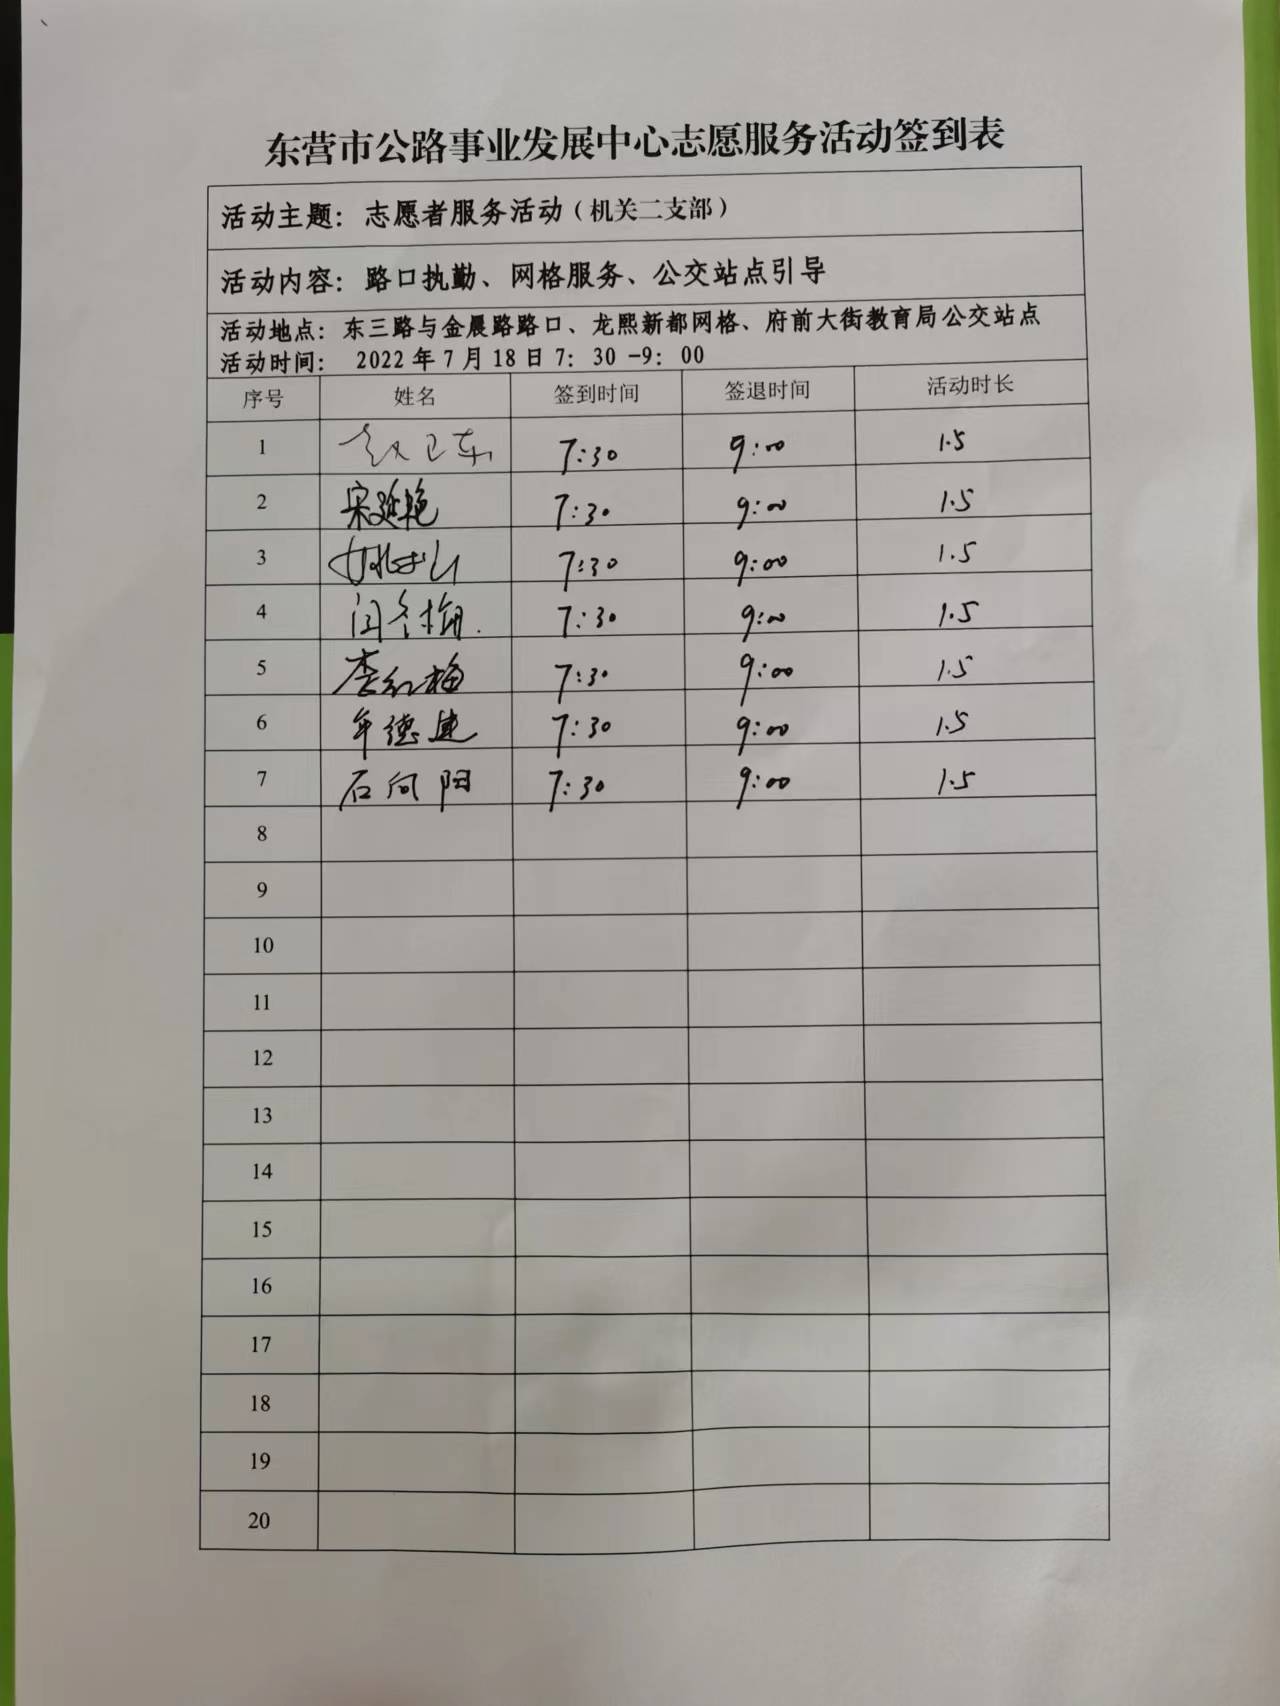 东营市公路事业发展中心志愿服务活动签到表
活动主题：志愿者服务活动（机关二支部）
活动内容：路口执勤、网格服务、公交站点引导
活动地点：东三路与金晨路路口、龙熙新都网格、府前大街教育局公交站点
活动时间： 2022年7月18日7：30-9：00
序号 姓名 签到时间 签退时间 活动时长
1 赵卫东 7:30 9:00 1.5
2 宋延艳 7:30 9:00 1.5
3 7:30 9:00 1.5
4 闫冬梅 7:30 9:00 1.5
5 李红梅 7:30 9:00 1.5
6 牟德建 7:30 9:00 1.5
7 石向阳 7:30 9:00 1.5
8
9
10
11
12
13
14
15
16
17
18
19
20